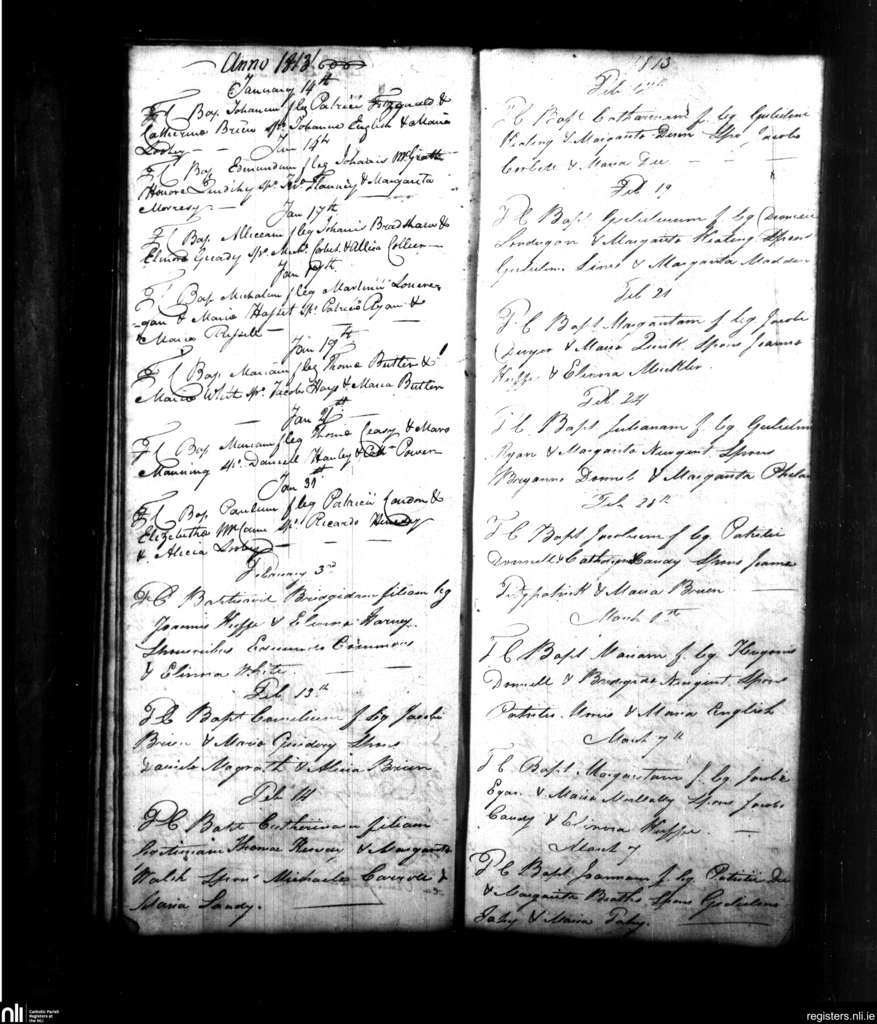 Anno 1813
January 14th
Bap. Johanem f leg Patricii Fitzgerald &
Catherina Brien Sps Johanne English & Maria
Jan 15th
Bap Edmundum f leg Johanis McGrath
Honora Sps Thos Flannery & Margarita
Jan 17th
Bap. Alliciam f leg Johanis Bradshaw &
Elinora Gready Sps Michl. & Allicia Collier
Jan
Bap Michalem f leg Martinii Loner
gan & Maria Sps Patricio Ryan &
Maria Russell
Jan 19th
Bap Mariam f leg Thoma Butler &
Maria White Sps Jacobo Hays & Maria Butler
Jan
Bap Mariam f leg Thoma Leary & Mara
Manning Sps Daniell Hanly & Cath Power
Jan 31st
Bap Paulum f leg Patricii Condon &
Elizabetha McCann Sps Ricardo
& Alicia
February 3rd
F C Baptizavit Bridgidam filiam leg
Joannis Keeffe & Elinora Harney
Sponsoribus Edmundo Commons
& Elinora White
Feb 13th
F C Bapt Cornelium f leg Jacobi
Brien & Maria Spons
Daniele Magrath & Alicia Brien
Feb 14
F C Bapt Catherinam filiam
legitimam Thomae & Margarita
Walsh Spons Michaele Carroll &
Maria Landy.
1813
Feb
F C Bapt Catharinam f. leg Gulielmi
Keating & Margarita Dunn Spos Jacobo
Corbett & Maria
Feb 19
F C Bapt Gulielmum f leg
Londregan & Margarita Keating Spons
Gulielmo & Margarita Madden
Feb 21
F. C Bapt Margaritam f leg Jacobi
Dwyer & Maria Quirk Spons Joanne
Keeffe & Elinora Meickler.
Feb. 24
F C. Bapt Julianam f. leg Gulielmi
Ryan & Margarita Neugent Spons
Bryanno Donnell & Margarita Phelan
Feb 25th
F C Bapt Jacobum f leg. Patricii
Donnell & Catharina Candy Spons Joanne
Fitzpatrick & Maria Brien
March
F C Bapt Mariam f. leg Hugonis
Donnell & Bridgida Neugent Spons
Patricio & Maria English
March 7th
F C. Bapt Margaritam f. leg Jacobi
Egan & Maria Mullally Spons Jacobo
Candy & Elinora Keeffe.
March 7
F C Bapt Joannem f. leg Patricii
& Margarita Spons Gulielmo
Fahy & Maria Fahy.
nli
Catholic Parish
Registers at
the NLI
registers.nli.ie